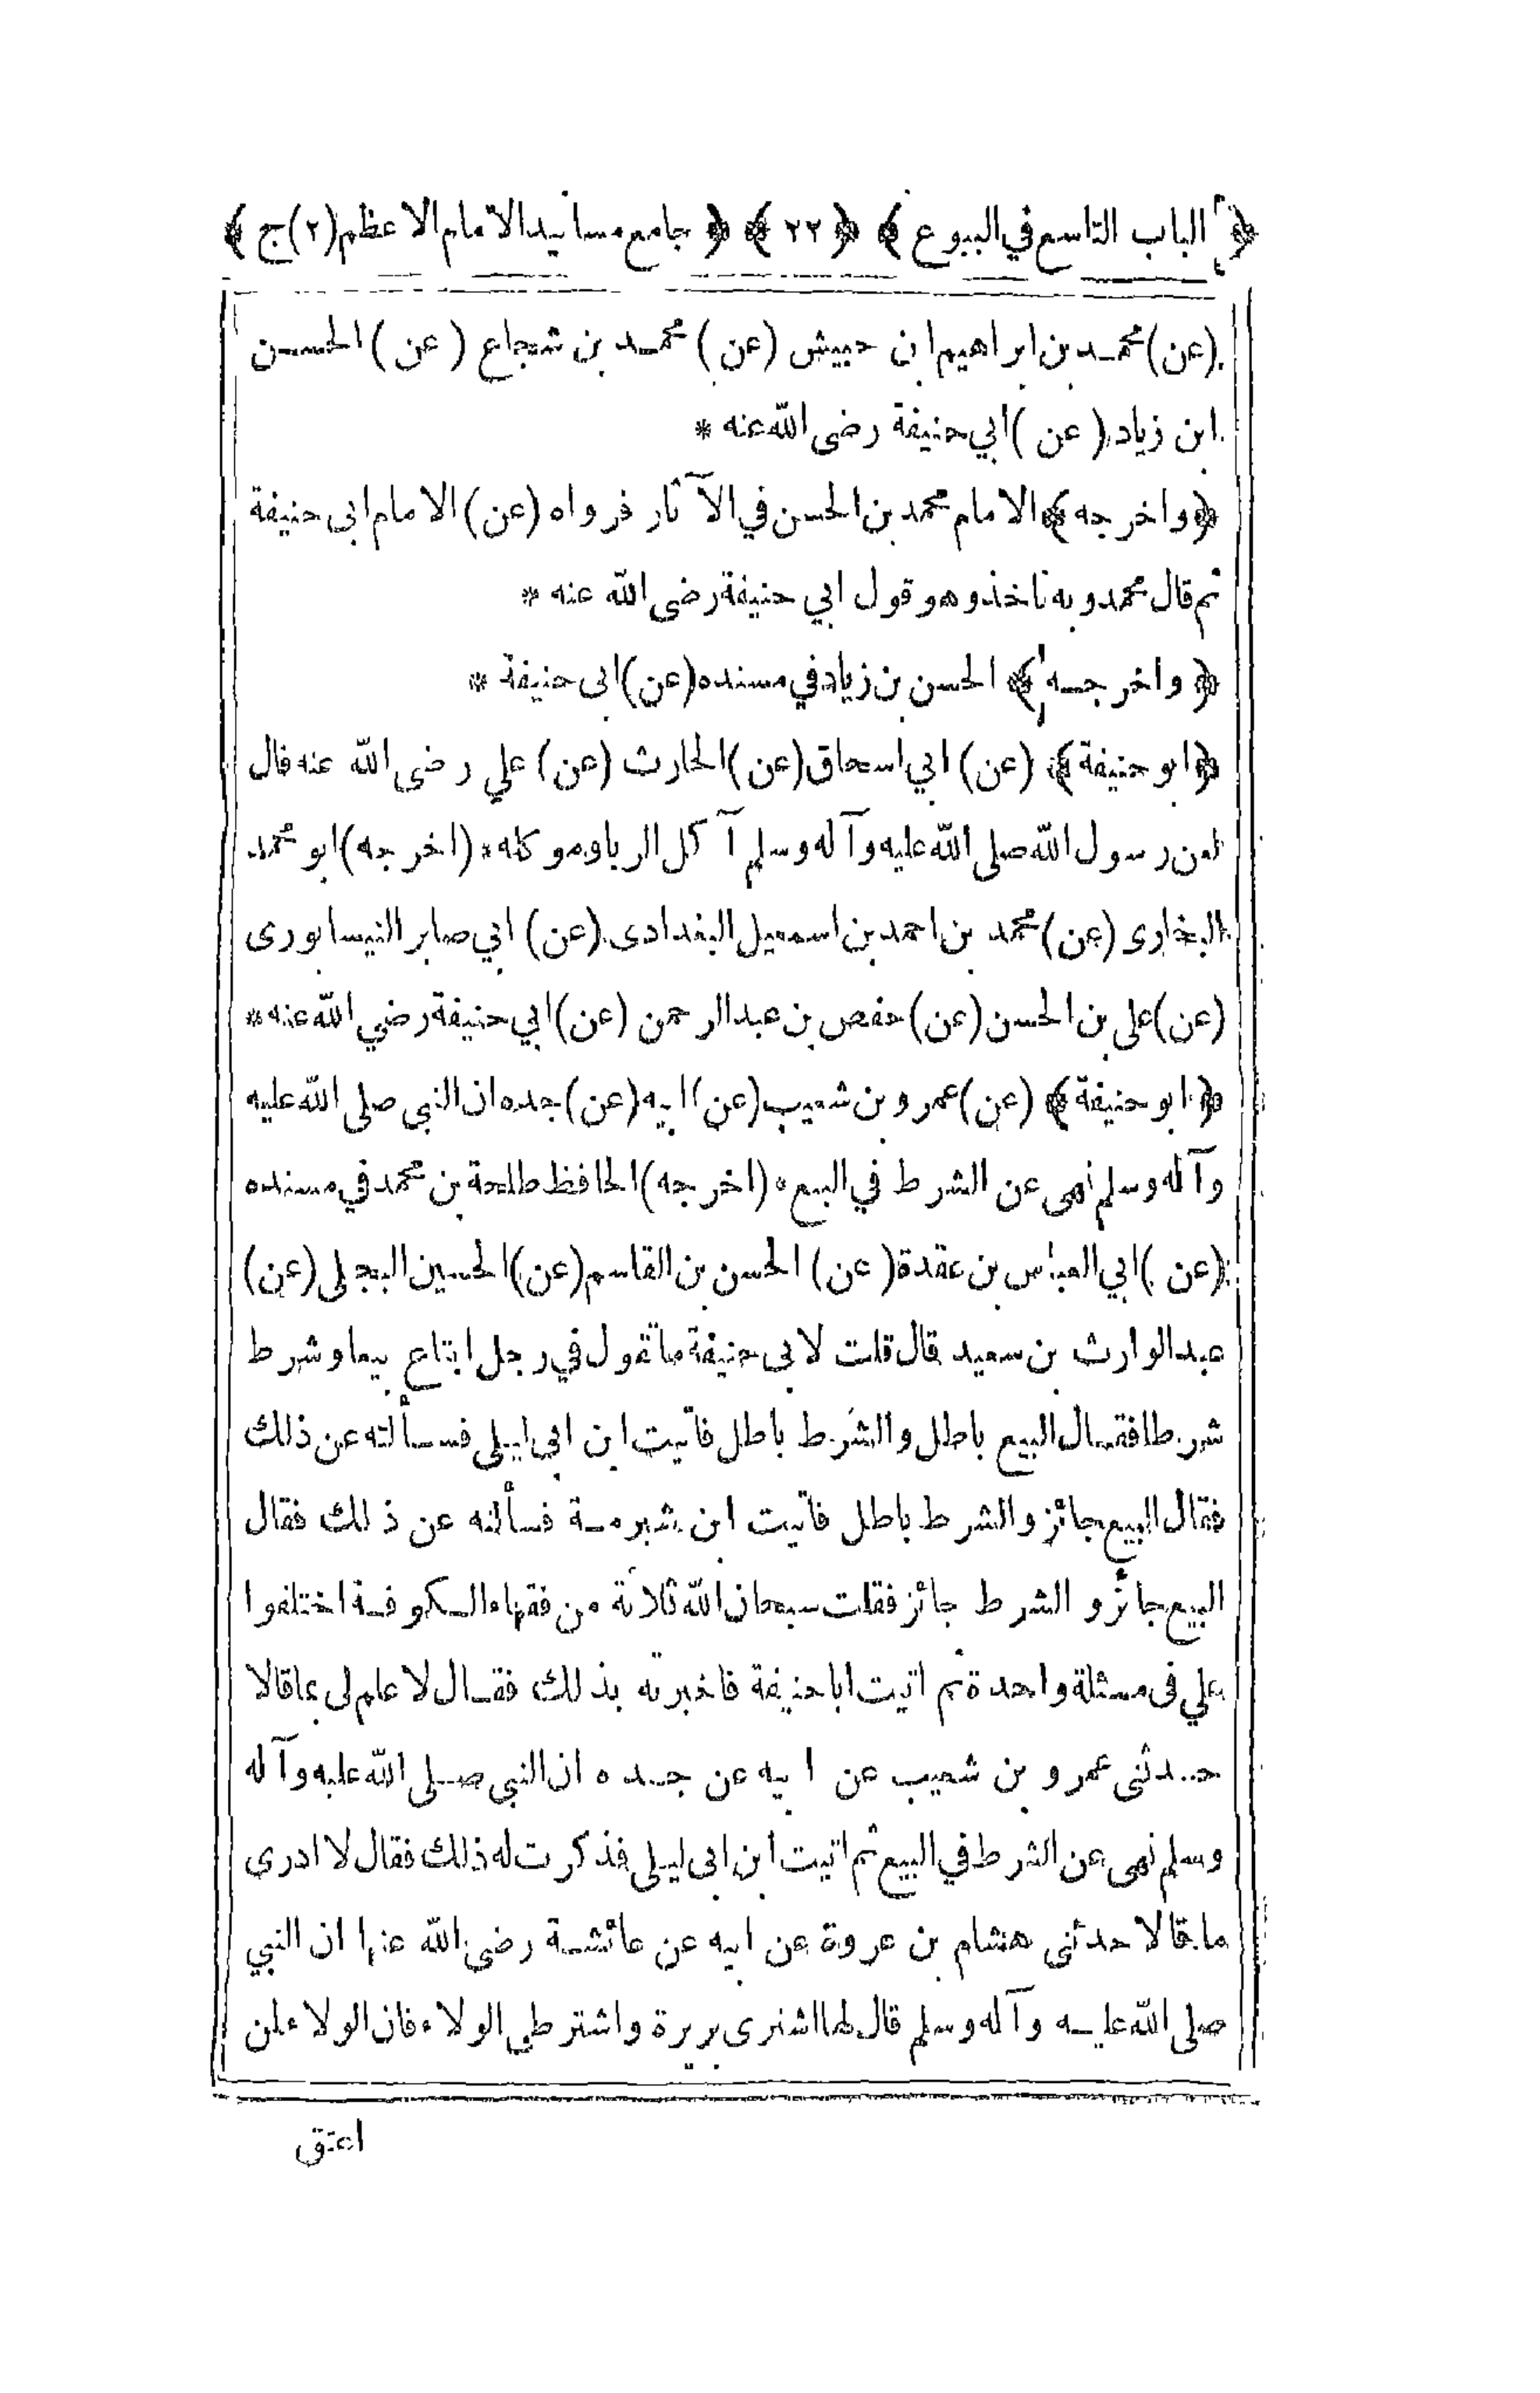 ﴿ الباب التاسع في البيوع ﴾ ﴿ ٢٢ ﴾ ﴿ جامع مسانيد الامام الاعظم (٢) ج ﴾
(عن) محمد بن ابراهيم ابن حبيش (عن) محمد بن شجاع (عن) الحسن
ابن زياد (عن) ابي حنيفة رضى الله عنه *
﴿ واخرجه ﴾ الامام محمد بن الحسن في الآثار فرواه (عن) الامام ابى حنيفة
ثم قال محمد وبه ناخذ وهو قول ابي حنيفة رضى الله عنه *
﴿ واخرجه ﴾ الحسن بن زياد في مسنده (عن) ابى حنيفة *
﴿ ابو حنيفة ﴾ (عن) ابي اسحاق (عن) الحارث (عن) علي رضى الله عنه قال
لعن رسول الله صلى الله عليه وآله وسلم آكل الربا وموكله * (اخرجه) ابو محمد
البخارى (عن) محمد بن احمد بن اسمعيل البغدادى (عن) ابي صابر النيسابورى
(عن) على بن الحسن (عن) حفص بن عبد الرحمن (عن) ابي حنيفة رضي الله عنه *
﴿ ابو حنيفة ﴾ (عن) عمرو بن شعيب (عن) ابيه (عن) جده ان النبي صلى الله عليه
وآله وسلم نهى عن الشرط في البيع * (اخرجه) الحافظ طلحة بن محمد في مسنده
(عن) ابي العباس بن عقدة (عن) الحسن بن القاسم (عن) الحسين البجلى (عن)
عبد الوارث بن سعيد قال قلت لابى حنيفة ما تقول في رجل ابتاع بيعا وشرط
شرطا فقال البيع باطل والشرط باطل فاتيت ابن ابى ليلى فسألته عن ذلك
فقال البيع جائز والشرط باطل فاتيت ابن شبرمة فسألته عن ذلك فقال
البيع جائز والشرط جائز فقلت سبحان الله ثلاثة من فقهاء الكوفة اختلفوا
علي فى مسئلة واحدة ثم اتيت ابا حنيفة فاخبرته بذلك فقال لا علم لى بما قالا
حدثنى عمرو بن شعيب عن ابيه عن جده ان النبي صلى الله عليه وآله
وسلم نهى عن الشرط في البيع ثم اتيت ابن ابى ليلى فذكرت له ذلك فقال لا ادرى
ما قالا حدثنى هشام بن عروة عن ابيه عن عائشة رضى الله عنها ان النبي
صلى الله عليه وآله وسلم قال لها اشترى بريرة واشترطى الولاء فان الولاء لمن
اعتق